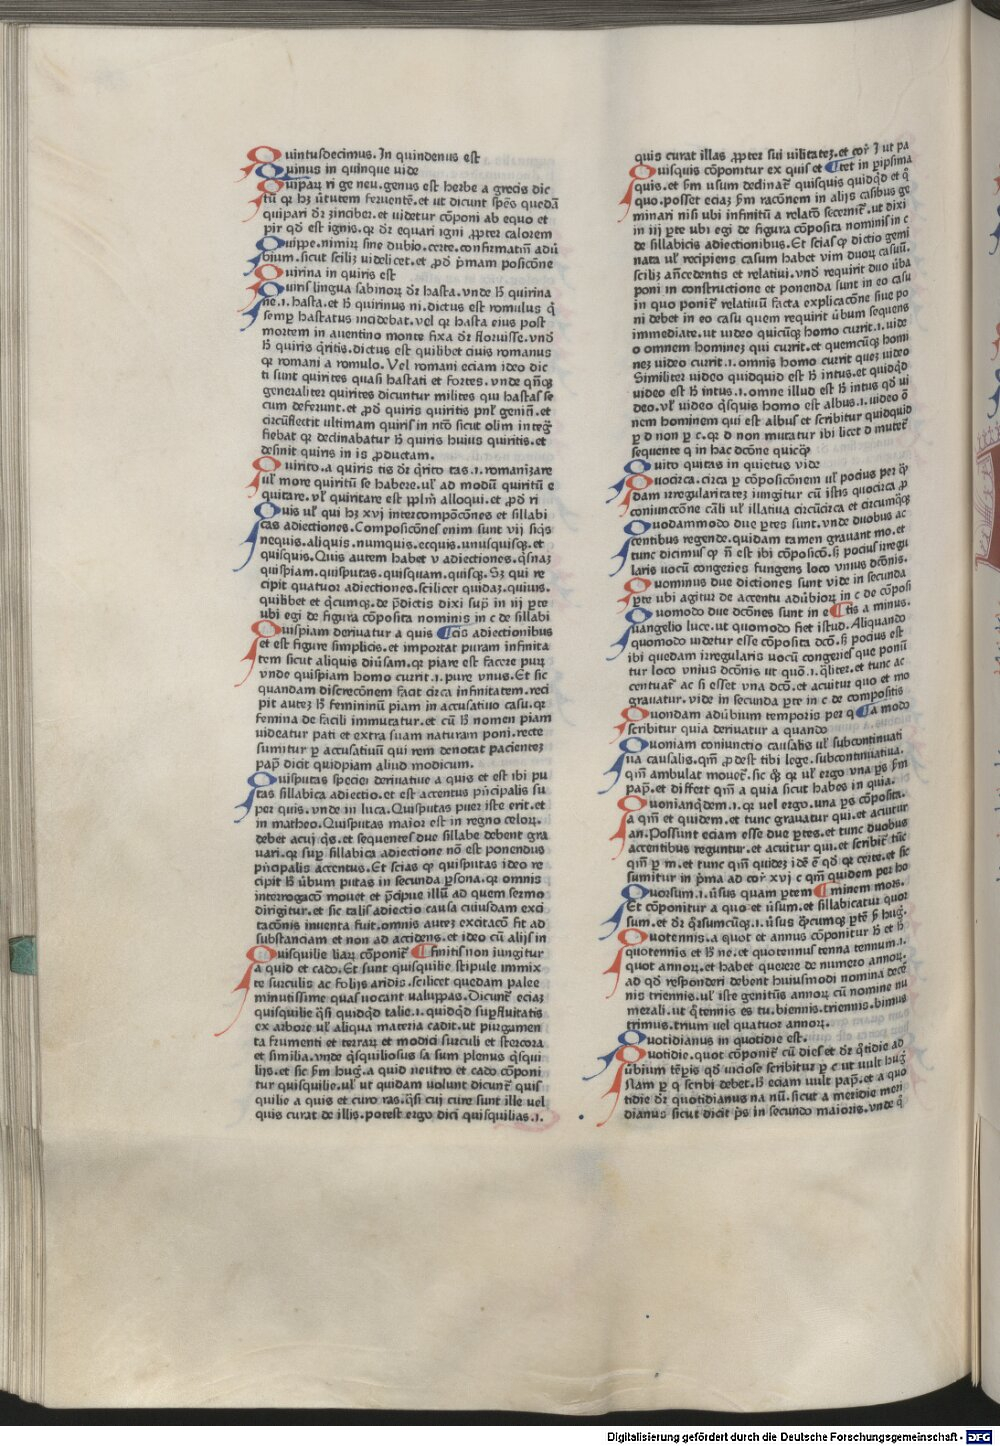 Quintusdecimus. In quindenus est
Quinus in quinque uide
Quipaɽ ri ge neu. genus est herbe a grecis dic
tū qꝛ hʒ ūtutem feruentē. et ut dicunt sp̄es quedā
quipari dr̄ zinciber. et uidetur cōponi ab equo et
pir qd̄ est ignis. qꝛ dr̄ equari igni ꝓpter calorem
Quippe. nimiɽ sine dubio. certe. confirmatiū adū
bium. sicut scilicʒ uidelicet. et ꝓd̄ p̄mam posicōne
Quirina in quiris est
Quiris lingua sabinoɽ dr̄ hasta. vnde h̄ quirina
ne .i. hasta. et h̄ quirinus ni. dictus est romulus q̄
semp̱ hastatus incidebat. vel qꝛ hasta eius post
mortem in auentino monte fixa dr̄ floruisse. vnd̄
h̄ quiris q̄ritis. dictus est quilibet ciuis romanus
qꝛ romani a romulo. Vel romani eciam ideo dic
ti sunt quirites quasi hastati et fortes. vnde qn̄qꝫ
generaliter quirites dicuntur milites qui hastas se
cum deferunt. et ꝓd̄ quiris quiritis pnl̄t geniū. et
circūflectit ultimam quiris in ntō sicut olim integr̄
fiebat qꝛ declinabatur h̄ quiris huius quiritis. et
definit quiris in is ꝓductam.
Quirito. a quiris tis dr̄ q̄rito tas .i. romanizare
ul̄ more quiritū se habere. ul̄ ad modū quiritū e
quitare. vl̄ quiritare est ꝓplm̄ alloqui. et ꝓd̄ ri
Quis ul̄ qui hʒ xvj intercompōcōnes et sillabi
cas adiectiones. Composicōnes enim sunt vij siqͥs
nequis. aliquis. numquis. ecquis. unusquisqꝫ. et
quisquis. Quis autem habet v adiectiones. qͥsnaʒ
quispiam. quisputas. quisquam. quisqꝫ. Sʒ qui re
cipit quatuor adiectiones. scilicet quidaʒ. quiuis.
quilibet et qͥcumqꝫ. de p̄dictis dixi sup̄ in iij ꝑte
ubi egi de figura cōposita nominis in c de sillabi
Quispiam deriuatur a quis ¶cis adiectionibus
et est figure simplicis. et importat puram infinita
tem sicut aliquis diūsam. qꝛ piare est facere puɽ
vnde quispiam homo currit .i. pure vnus. Et sic
quandam discrecōnem facit circa infinitatem. reci
pit auteʒ h̄ femininū piam in accusatiuo casu. qꝛ
femina de facili immutatur. et cū h̄ nomen piam
uideatur pati et extra suam naturam poni. recte
sumitur ꝑ accusatiuū qui rem denotat pacienteʒ
pap̄ dicit quidpiam aliud modicum.
Quisputas speciei deriuatiue a quis et est ibi pu
tas sillabica adiectio. et est accentus pn̄cipalis su
per quis. vnde in luca. Quisputas puer iste erit. et
in matheo. Quisputas maior est in regno celoɽ.
debet acui qͥs. et sequentes due sillabe debent gra
uari. qꝛ sup̄ sillabica adiectione nō est ponendus
pn̄cipalis accentus. Et scias qꝙ quisputas ideo re
cipit h̄ ūbum putas in secunda ꝑsona. qꝛ omnis
interrogacō mouet et p̄cipue illū ad quem sermo
dirigitur. et sic talis adiectio causa cuiusdam exci
tacōnis inuenta fuit. omnis auteʒ excitacō fit ad
substanciam et non ad accidens. et ideo cū alijs in
Quisquilie liaɽ cōponit̄ ¶finitis non iungitur
a quid et cado. Et sunt quisquilie stipule immix
te surculis ac folijs aridis. scilicet quedam palee
minutissime quas uocant ualuppas. Dicunt̄ eciaʒ
quisquilie qͥsi quidqd̄ talie .i. quidqd̄ suꝑfluitatis
ex arbore ul̄ aliqua materia cadit. ut purgamen
ta frumenti et terraɽ et modici surculi et stercora
et similia. vnde qͥsquiliosus sa sum plenus qͥsqui
lijs. et sic s̄m hug̃. a quid neutro et cado cōponi
tur quisquilie. ul̄ ut quidam uolunt dicunt̄ quis
quilie a quis et curo ras. qͥsi cui cure sunt ille uel
quis curat de illis. potest ergo dici quisquilias .i.
quis curat illas ꝓpter sui uilitateʒ. et cor̄ J ut pa
Quisquis cōponitur ex quis et ¶tet in ꝑipsima
quis. et s̄m usum declinat̄ quisquis quidqd̄ et qͦ
quo. posset eciaʒ s̄m racōnem in alijs casibus ge
minari nisi ubi infinitū a relatō secernit̄. ut dixi
in iij ꝑte ubi egi de figura cōposita nominis in c
de sillabicis adiectionibus. Et scias qꝙ dictio gemi
nata ul̄ recipiens casum habet vim duoɽ casuū.
scilʒ an̄cedentis et relatiui. vnd̄ requirit duo ūba
poni in constructione et ponenda sunt in eo casu
in quo ponit̄ relatiuū facta explicacōne siue po
ni debet in eo casu quem requirit ūbum sequens
immediate. ut uideo quicūqꝫ homo currit .i. uide
o omnem homineʒ qui currit. et quemcūqꝫ homi
neʒ uideo currit .i. omnis homo currit queʒ uideo
Similiter uideo quidquid est h̄ intus. et quidqd̄
uideo est h̄ intus .i. omne illud est h̄ intus qd̄ ui
deo. vl̄ uideo qͥsquis homo est albus .i. uideo ō
nem hominem qui est albus et scribitur quidquid
ꝑ d non ꝑ c. qꝛ d non mutatur ibi licet d mutet̄
sequente q in hac dcōne quicqͣ
Quito quitas in quietus vide
Quocirca. circa ꝑ cōposicōnem ul̄ pocius per qͣ
dam irregularitateʒ iungitur cū istis quocirca ꝓ
coniunccōne cāli ul̄ illatiua circūcirca et circumqͣqꝫ
Quodammodo due ꝑtes sunt. vnde duobus ac
centibus regende. quidam tamen grauant mo. et
tunc dicimus qꝙ n̄ est ibi cōposicō. sʒ pocius irregu
laris uocū congeries fungens loco vnius dcōnis.
Quominus due dictiones sunt vide in secunda
ꝑte ubi agitur de accentu adūbioɽ in c de cōposi
Quomodo due dcōnes sunt in e ¶tis a minus.
uangelio luce. ut quomodo fiet istud. Aliquando
quomodo uidetur esse cōposita dcō. sʒ pocius est
ibi quedam irregularis uocū congeries que poniū
tur loco vnius dcōnis ut quō .i. qͣliter. et tunc ac
centuat̄ ac si esset vna dcō. et acuitur quo et mo
grauatur. vide in secunda ꝑte in c de compositis
Quondam adūbium temporis per q ¶a modo
scribitur quia deriuatur a quando
Quoniam coniunctio causalis ul̄ subcontinuati
ua causalis. qm̄ ꝓdest tibi lege. subcontinuatiua.
qm̄ ambulat mouet̄. sic q̄ꝫ qꝛ ul̄ ergo vna ꝑs s̄m
pap̄. et differt qm̄ a quia sicut habes in quia.
Quonianqͥdem .i. qꝛ uel ergo. una ꝑs cōposita.
a qm̄ et quidem. et tunc grauatur qui. et acuitur
an. Possunt eciam esse due ꝑtes. et tunc duobus
accentibus reguntur. et acuitur qui. et scribit̄ tūc
qm̄ ꝑ m. et tunc qm̄ quideʒ idē ē qd̄ qꝛ certe. et sic
sumitur in p̄ma ad cor̄ xvj c qm̄ quidem per ho
Quorsum .i. ūsus quam ꝑtem ¶minem mors.
Et cōponitur a quo et ūsum. et sillabicatur quor
sum. et dr̄ qͦrsumcūqꝫ .i. ūsus qͣcumqꝫ ꝑtē s̄ hug̃.
Quotennis. a quot et annus cōponitur h̄ et h̄
quotennis et h̄ ne. et quotennus tenna tennum .i.
quot annoɽ. et habet querere de numero annoɽ.
ad qd̄ responderi debent huiusmodi nomina decē
nis triennis. ul̄ iste genitūs annoɽ cū nomine nu
merali. ut qͦtennis es tu. biennis. triennis. bimus
trimus. trium uel quatuor annoɽ.
Quotidianus in quotidie est.
Quotidie. quot cōponit̄ cū dies et dr̄ qͦtidie ad
ūbium tēp̱is qd̄ uiciose scribitur ꝑ c ut uult hug̃
Nam ꝑ q scribi debet. h̄ eciam uult pap̄. et a quo
tidie dr̄ quotidianus na nū. sicut a meridie meri
dianus sicut dicit p̄s in secundo maioris. vnde qͥ
Digitalisierung gefördert durch die Deutsche Forschungsgemeinschaft - DFG